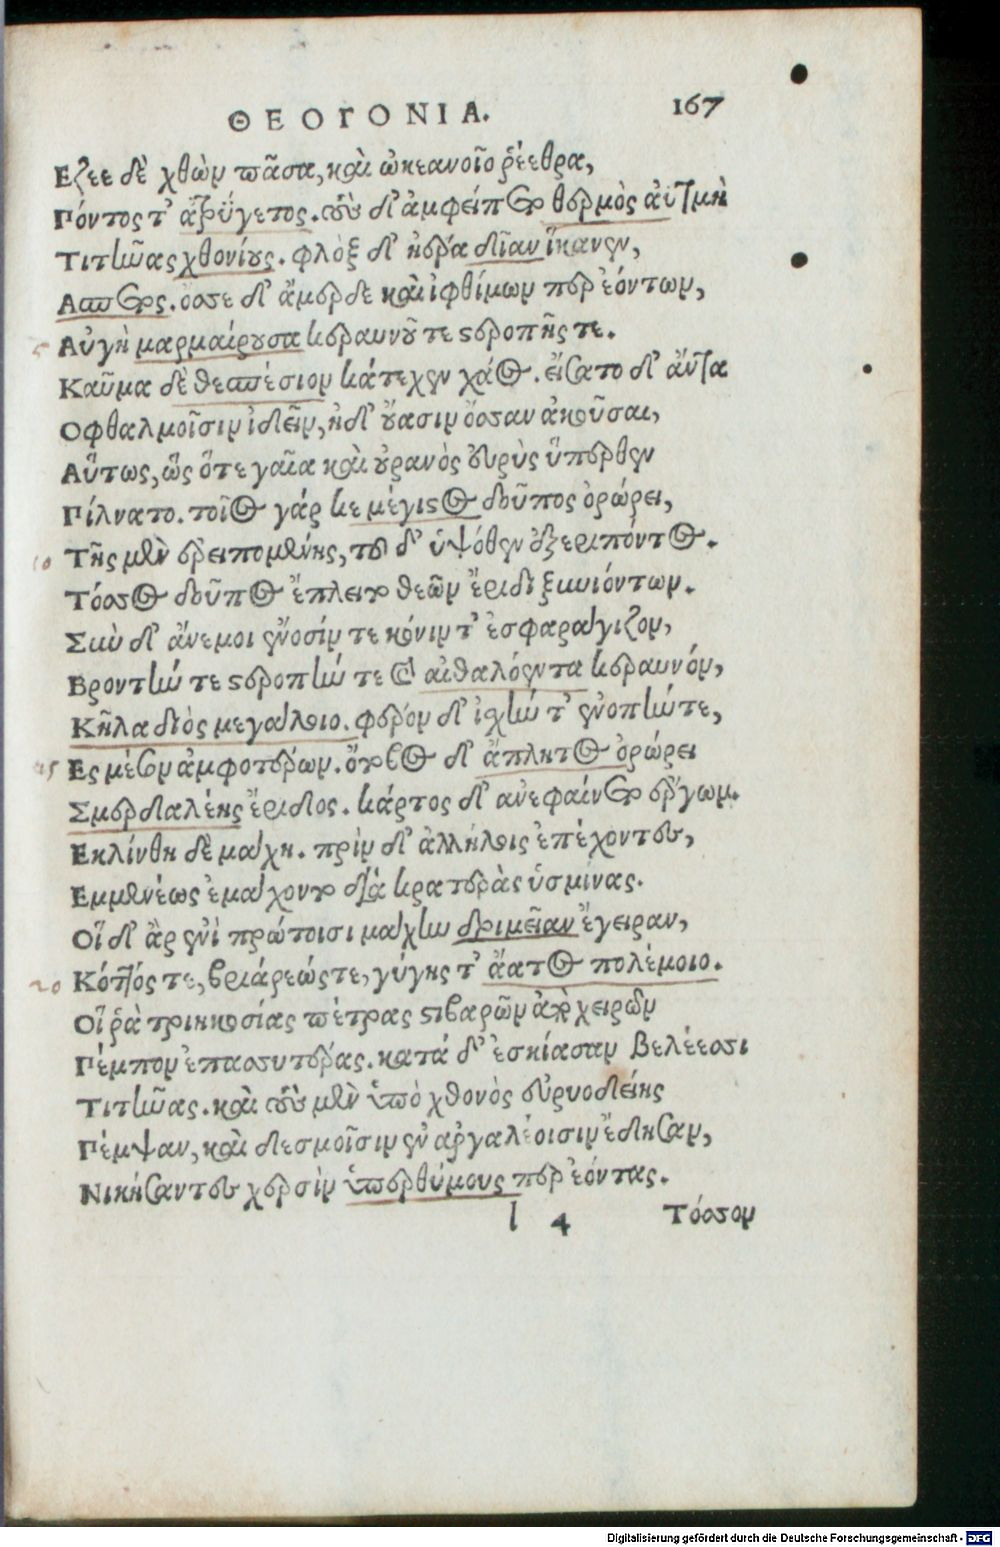 ΘΕΟΓΟΝΙΑ. 167
Εζεε δὲ χθὼν πᾶσα, καὶ ὠκεανοῖο ῥέεθρα,
Πόντος τ' ἀτρύγετος. τοὺς δ' ἄμφεπε θερμὸς ἀϋτμὴ
Τιτῆνας χθονίους. φλὸξ δ' ἠέρα δῖαν ἵκανεν,
Ασπετος. ὄσσε δ' ἄμερδε καὶ ἰφθίμων περ ἐόντων,
5 Αὐγὴ μαρμαίρουσα κεραυνοῦ τε στεροπῆς τε.
Καῦμα δὲ θεσπέσιον κάτεχεν χάος. εἴσατο δ' ἄντα
Οφθαλμοῖσιν ἰδεῖν, ἠδ' οὔασιν ὄσσαν ἀκοῦσαι,
Αὔτως, ὣς ὅτε γαῖα καὶ οὐρανὸς εὐρὺς ὕπερθεν
Πίλνατο. τοῖος γάρ κε μέγιστος δοῦπος ὀρώρει,
10 Τῆς μὲν ἐρειπομένης, τοῦ δ' ὑψόθεν ἐξεριπόντος.
Τόσσος δοῦπος ἔπλετο θεῶν ἔριδι ξυνιόντων.
Σὺν δ' ἄνεμοι ἔνοσίν τε κόνιν τ' ἐσφαράγιζον,
Βροντήν τε στεροπήν τε καὶ αἰθαλόεντα κεραυνόν,
Κῆλα διὸς μεγάλοιο. φέρον δ' ἰαχήν τ' ἐνοπήν τε,
15 Ες μέσον ἀμφοτέρων. ὄτοβος δ' ἄπλητος ὀρώρει
Σμερδαλέης ἔριδος. κάρτος δ' ἀνεφαίνετο ἔργων.
Εκλίνθη δὲ μάχη. πρὶν δ' ἀλλήλοις ἐπέχοντες,
Εμμενέως ἐμάχοντο διὰ κρατερὰς ὑσμίνας.
Οἳ δ' ἂρ ἐνὶ πρώτοισι μάχην δριμεῖαν ἔγειραν,
20 Κόττός τε, βριάρεώς τε, γύγης τ' ἄατος πολέμοιο.
Οἵ ῥὰ τριηκοσίας πέτρας στιβαρῶν ἀπὸ χειρῶν
Πέμπον ἐπασσυτέρας. κατὰ δ' ἐσκίασαν βελέεσσι
Τιτῆνας. καὶ τοὺς μὲν ὑπὸ χθονὸς εὐρυοδείης
Πέμψαν, καὶ δεσμοῖσιν ἐν ἀργαλέοισιν ἔδησαν,
Νικήσαντες χερσὶν ὑπερθύμους περ ἐόντας.
l 4 Τόσσον
Digitalisierung gefördert durch die Deutsche Forschungsgemeinschaft - DFG